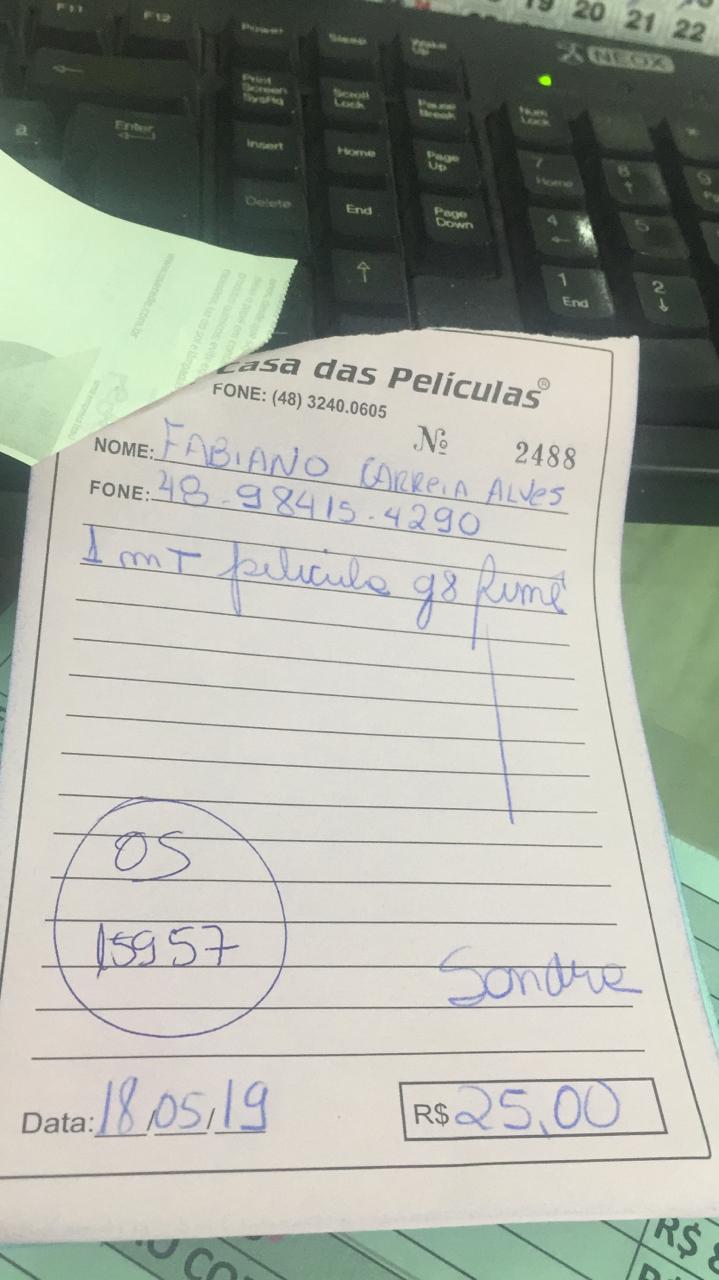 19 20 21 22
F11 F12 Power Sleep Wake Up
NEOX
Print Screen SysRq Scroll Lock Pause Break Num Lock
a Enter Insert Home Page Up 7 Home 8
Delete End Page Down 4 5
1 End 2
Casa das Películas®
FONE: (48) 3240.0605
Nº 2488
NOME: FABIANO CARREIA ALVES
FONE: 48-98415-4290
1 mT película g8 fumê
OS
15957
Sandra
Data: 18/05/19 R$ 25,00
R$